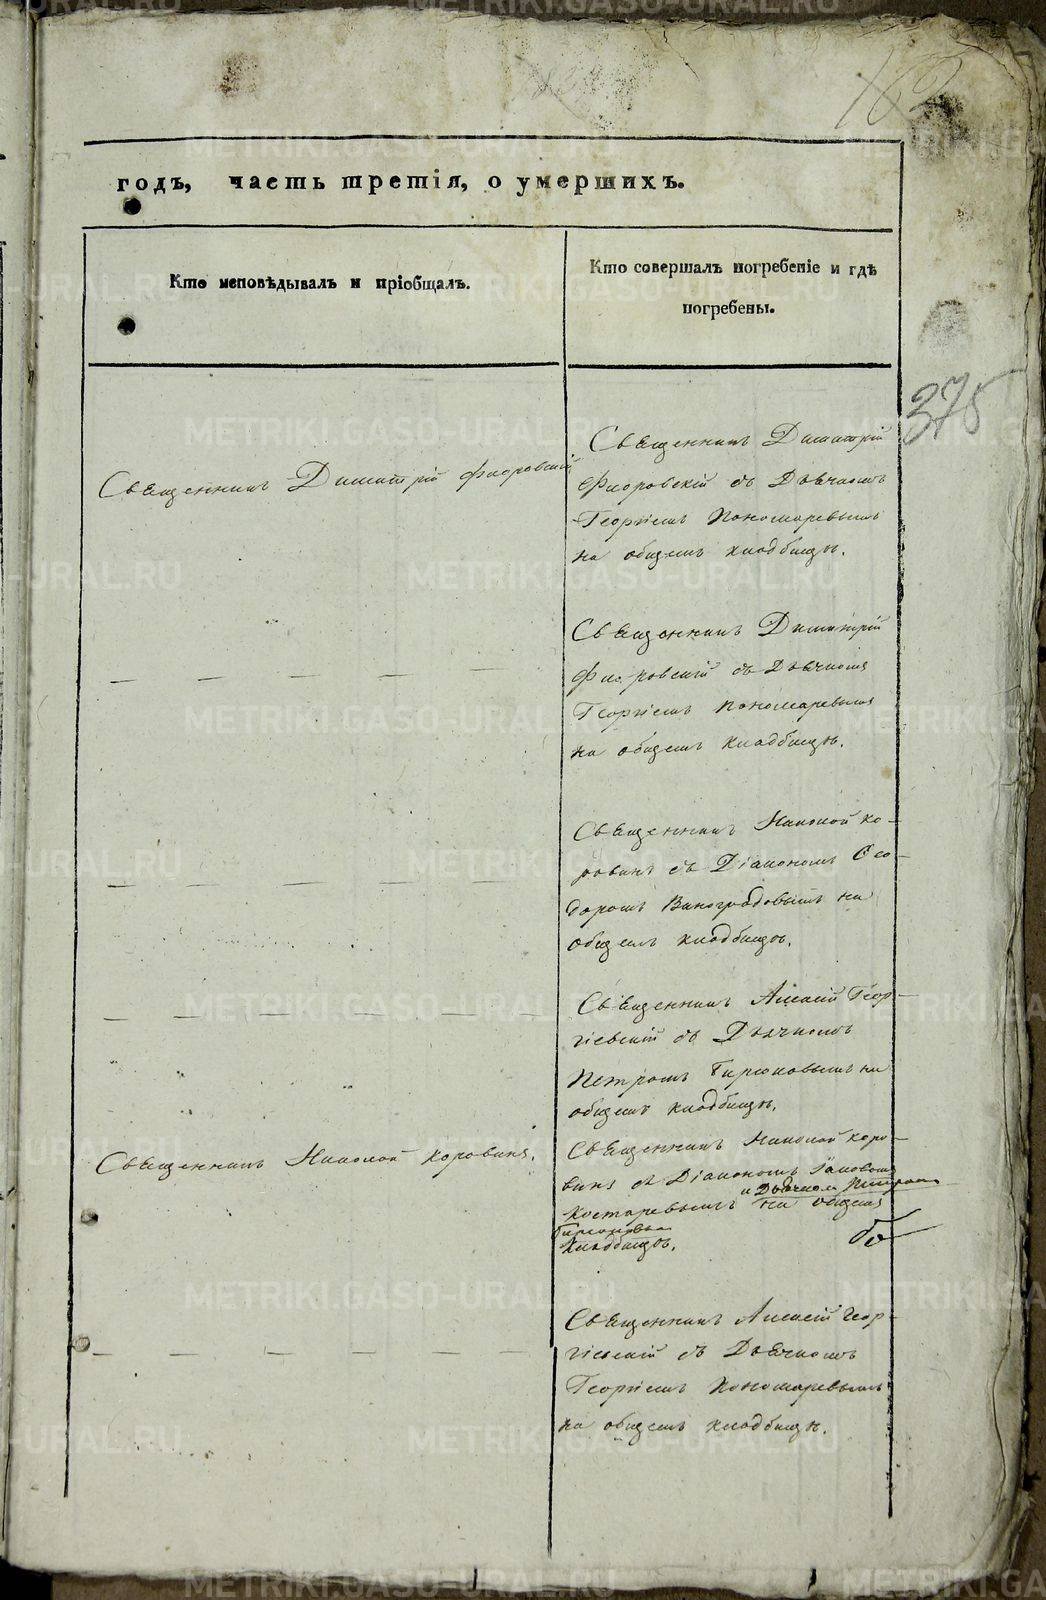 162
годъ, часть третія, о умершихъ.
Кто исповѣдывалъ и пріобщалъ.
Кто совершалъ погребеніе и гдѣ
погребены.
375
Священникъ Димитрій Флоровскій
Священникъ Димитрій
Флоровскій съ Дьячкомъ
Георгіемъ Пономаревымъ
на общемъ кладбищѣ.
Священникъ Димитрій
Флоровскій съ Дьячкомъ
Георгіемъ Пономаревымъ
на общемъ кладбищѣ.
Священникъ Николай Ко-
ровинъ съ Діакономъ Ѳео-
доромъ Виноградовымъ на
общемъ кладбищѣ.
Священникъ Алексій Геор-
гіевскій съ Дьячкомъ
Петромъ Бирюковымъ на
общемъ кладбищѣ.
Священникъ Николай Коровинъ.
Священникъ Николай Коро-
винъ съ Діакономъ Іаковомъ
и Дьячкомъ Петромъ
Костаревымъ на общемъ
Бирюковым
кладбищѣ.
Священникъ Алексій Геор-
гіевскій съ Дьячкомъ
Георгіемъ Пономаревымъ
на общемъ кладбищѣ.
METRIKI.GASO-URAL.RU